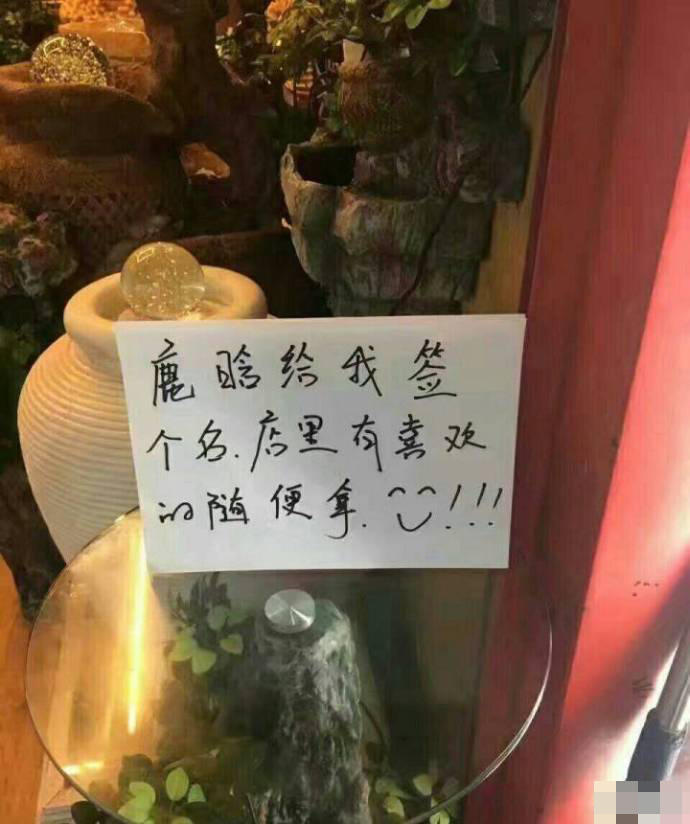 鹿晗给我签
个名.店里有喜欢
的随便拿.^^!!!